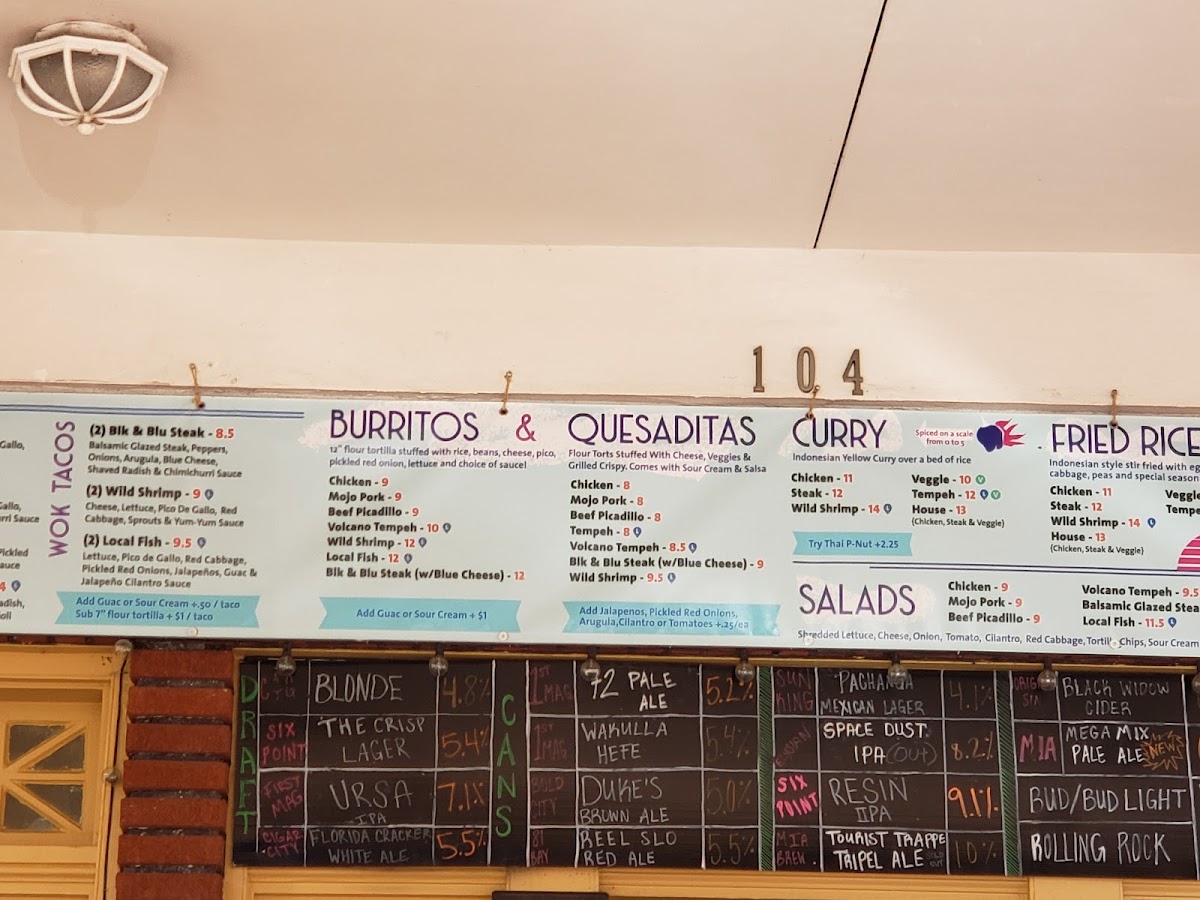 104
Gallo,
Gallo,
rri Sauce
Pickled
auce
4
adish,
oli
WOK TACOS
(2) Blk & Blu Steak - 8.5
Balsamic Glazed Steak, Peppers,
Onions, Arugula, Blue Cheese,
Shaved Radish & Chimichurri Sauce
(2) Wild Shrimp - 9
Cheese, Lettuce, Pico De Gallo, Red
Cabbage, Sprouts & Yum-Yum Sauce
(2) Local Fish - 9.5
Lettuce, Pico de Gallo, Red Cabbage,
Pickled Red Onions, Jalapeños, Guac &
Jalapeño Cilantro Sauce
Add Guac or Sour Cream +.50 / taco
Sub 7" flour tortilla + $1 / taco
BURRITOS & QUESADITAS
12" flour tortilla stuffed with rice, beans, cheese, pico,
pickled red onion, lettuce and choice of sauce!
Chicken - 9
Mojo Pork - 9
Beef Picadillo - 9
Volcano Tempeh - 10
Wild Shrimp - 12
Local Fish - 12
Blk & Blu Steak (w/Blue Cheese) - 12
Add Guac or Sour Cream + $1
Flour Torts Stuffed With Cheese, Veggies &
Grilled Crispy. Comes with Sour Cream & Salsa
Chicken - 8
Mojo Pork - 8
Beef Picadillo - 8
Tempeh - 8
Volcano Tempeh - 8.5
Blk & Blu Steak (w/Blue Cheese) - 9
Wild Shrimp - 9.5
Add Jalapenos, Pickled Red Onions,
Arugula, Cilantro or Tomatoes +.25/ea
CURRY
Spiced on a scale
from 0 to 5
Indonesian Yellow Curry over a bed of rice
Chicken - 11
Steak - 12
Wild Shrimp - 14
Veggie - 10
Tempeh - 12
House - 13
(Chicken, Steak & Veggie)
Try Thai P-Nut +2.25
FRIED RICE
Indonesian style stir fried with eg
cabbage, peas and special season
Chicken - 11
Steak - 12
Wild Shrimp - 14
House - 13
(Chicken, Steak & Veggie)
Veggie
Tempe
SALADS
Chicken - 9
Mojo Pork - 9
Beef Picadillo - 9
Volcano Tempeh - 9.5
Balsamic Glazed Stea
Local Fish - 11.5
Shredded Lettuce, Cheese, Onion, Tomato, Cilantro, Red Cabbage, Tortilla Chips, Sour Cream
DRAFT
BLONDE 4.8%
SIX POINT THE CRISP LAGER 5.4%
FIRST MAG URSA IPA 7.1%
CIGAR CITY FLORIDA CRACKER WHITE ALE 5.5%
CANS
1ST MAG 72 PALE ALE 5.2%
1ST MAG WAKULLA HEFE 5.4%
BOLD CITY DUKE'S BROWN ALE 5.0%
81 BAY REEL SLO RED ALE 5.5%
SUN KING PACHANGA MEXICAN LAGER 4.1%
SPACE DUST IPA (OUT) 8.2%
SIX POINT RESIN IIPA 9.1%
MIA BREW. TOURIST TRAPPE TRIPEL ALE SOLD OUT 10%
ORIG SIN BLACK WIDOW CIDER
MIA MEGA MIX PALE ALE NEW
BUD/BUD LIGHT
ROLLING ROCK